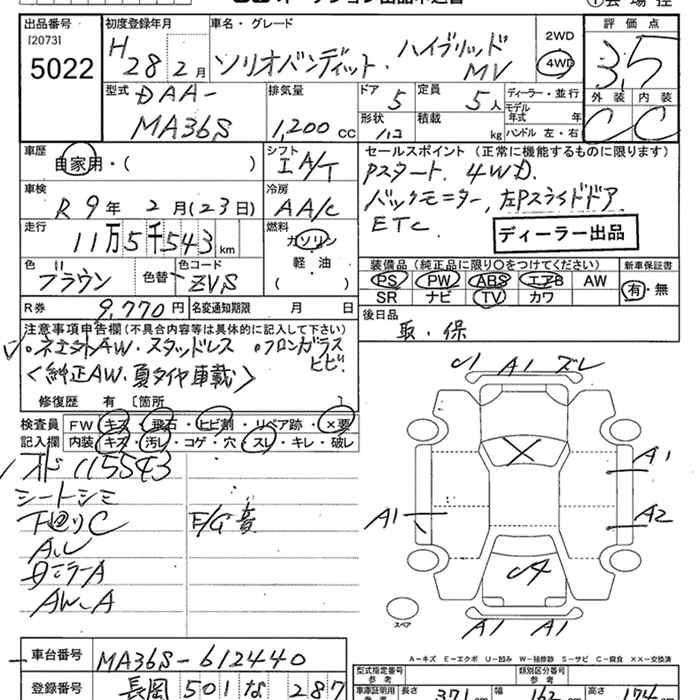 出品番号 初度登録年月 車名・グレード 2WD 評価点
[2073]
5022 H 28 2月 ソリオバンディット・ハイブリッド MV 4WD 3.5
型式 排気量 ドア 定員 ディーラー・並行 外装 内装
DAA-
MA36S 1,200 cc 5 5人 モデル年式 年 C C
形状 積載 kg ハンドル 左・右
車歴 自家用・( ) シフト IA/T セールスポイント (正常に機能するものに限ります)
Pスタート. 4WD.
車検 R 9年 2月(23日) 冷房 AA/C バックモニター, 左Pスライドドア
ETC. ディーラー出品
走行 11万5千543km 燃料 ガソリン・軽・油 ( )
色 ブラウン 色替 色コード ZVS
装備品 (純正品に限り○をつけてください) 新車保証書
PS PW ABS エアB AW 有・無
SR ナビ TV カワ
R券 9,770円 名変通知期限 月 日 後日品
取・保
注意事項申告欄(不具合内容等は具体的に記入して下さい)
・スタッドレス 。フロントガラス ヒビ.
<純正AW・夏タイヤ車載>
修復歴 有 [箇所 ]
検査員 FW キズ・飛石・ヒビ割・リペア跡・×要
記入欄 内装 キズ・汚レ・コゲ・穴・スレ・キレ・破レ
115543
シートシミ
下回りC F/G音
AW-A
U1 A1 ズレ
A1
A1 A2
A1 A1
スペア
A-キズ E-エクボ U-凹み W-補修跡 S-サビ C-腐食 ××-交換済
車台番号 MA36S-612440
型式指定番号 参考 類別区分番号 参考
登録番号 長岡 501 な 287
車庫証明用 長さ 371cm 幅 162cm 高さ 174cm